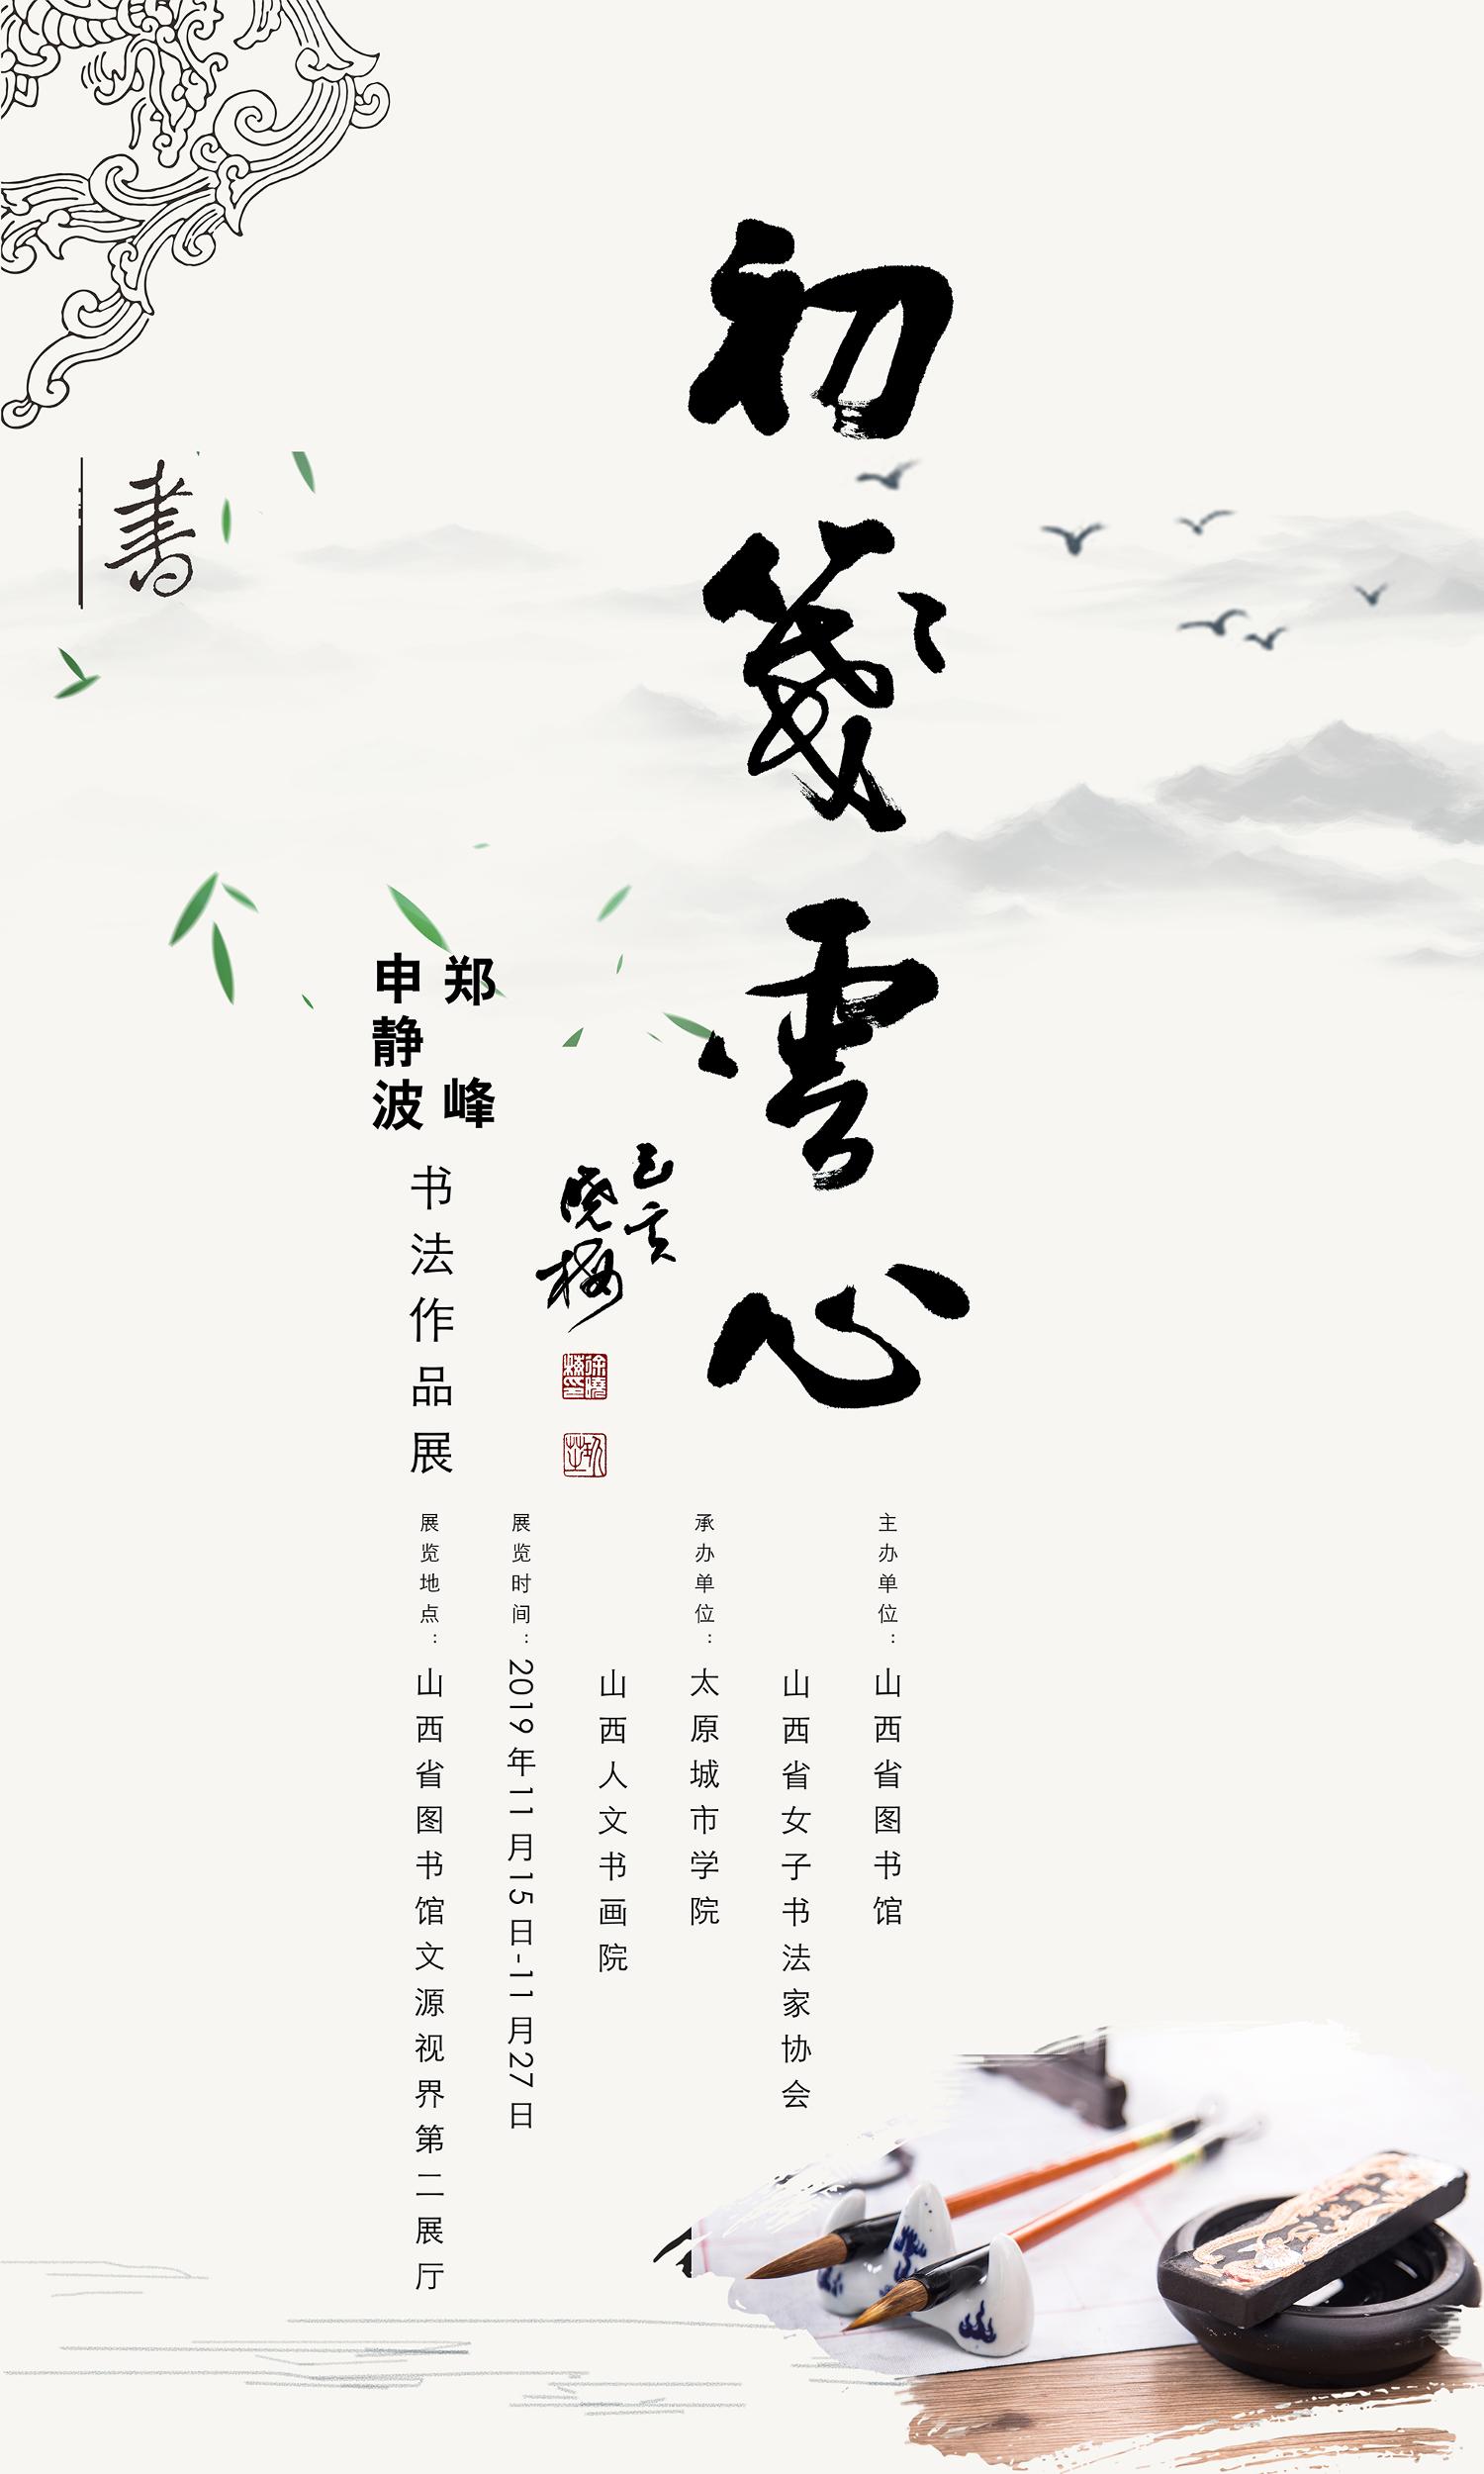 初笺雲心
己亥
晓梅
郑峰
申静波
书法作品展
主办单位：山西省图书馆
山西省女子书法家协会
承办单位：太原城市学院
山西人文书画院
展览时间：2019年11月15日-11月27日
展览地点：山西省图书馆文源视界第二展厅
書